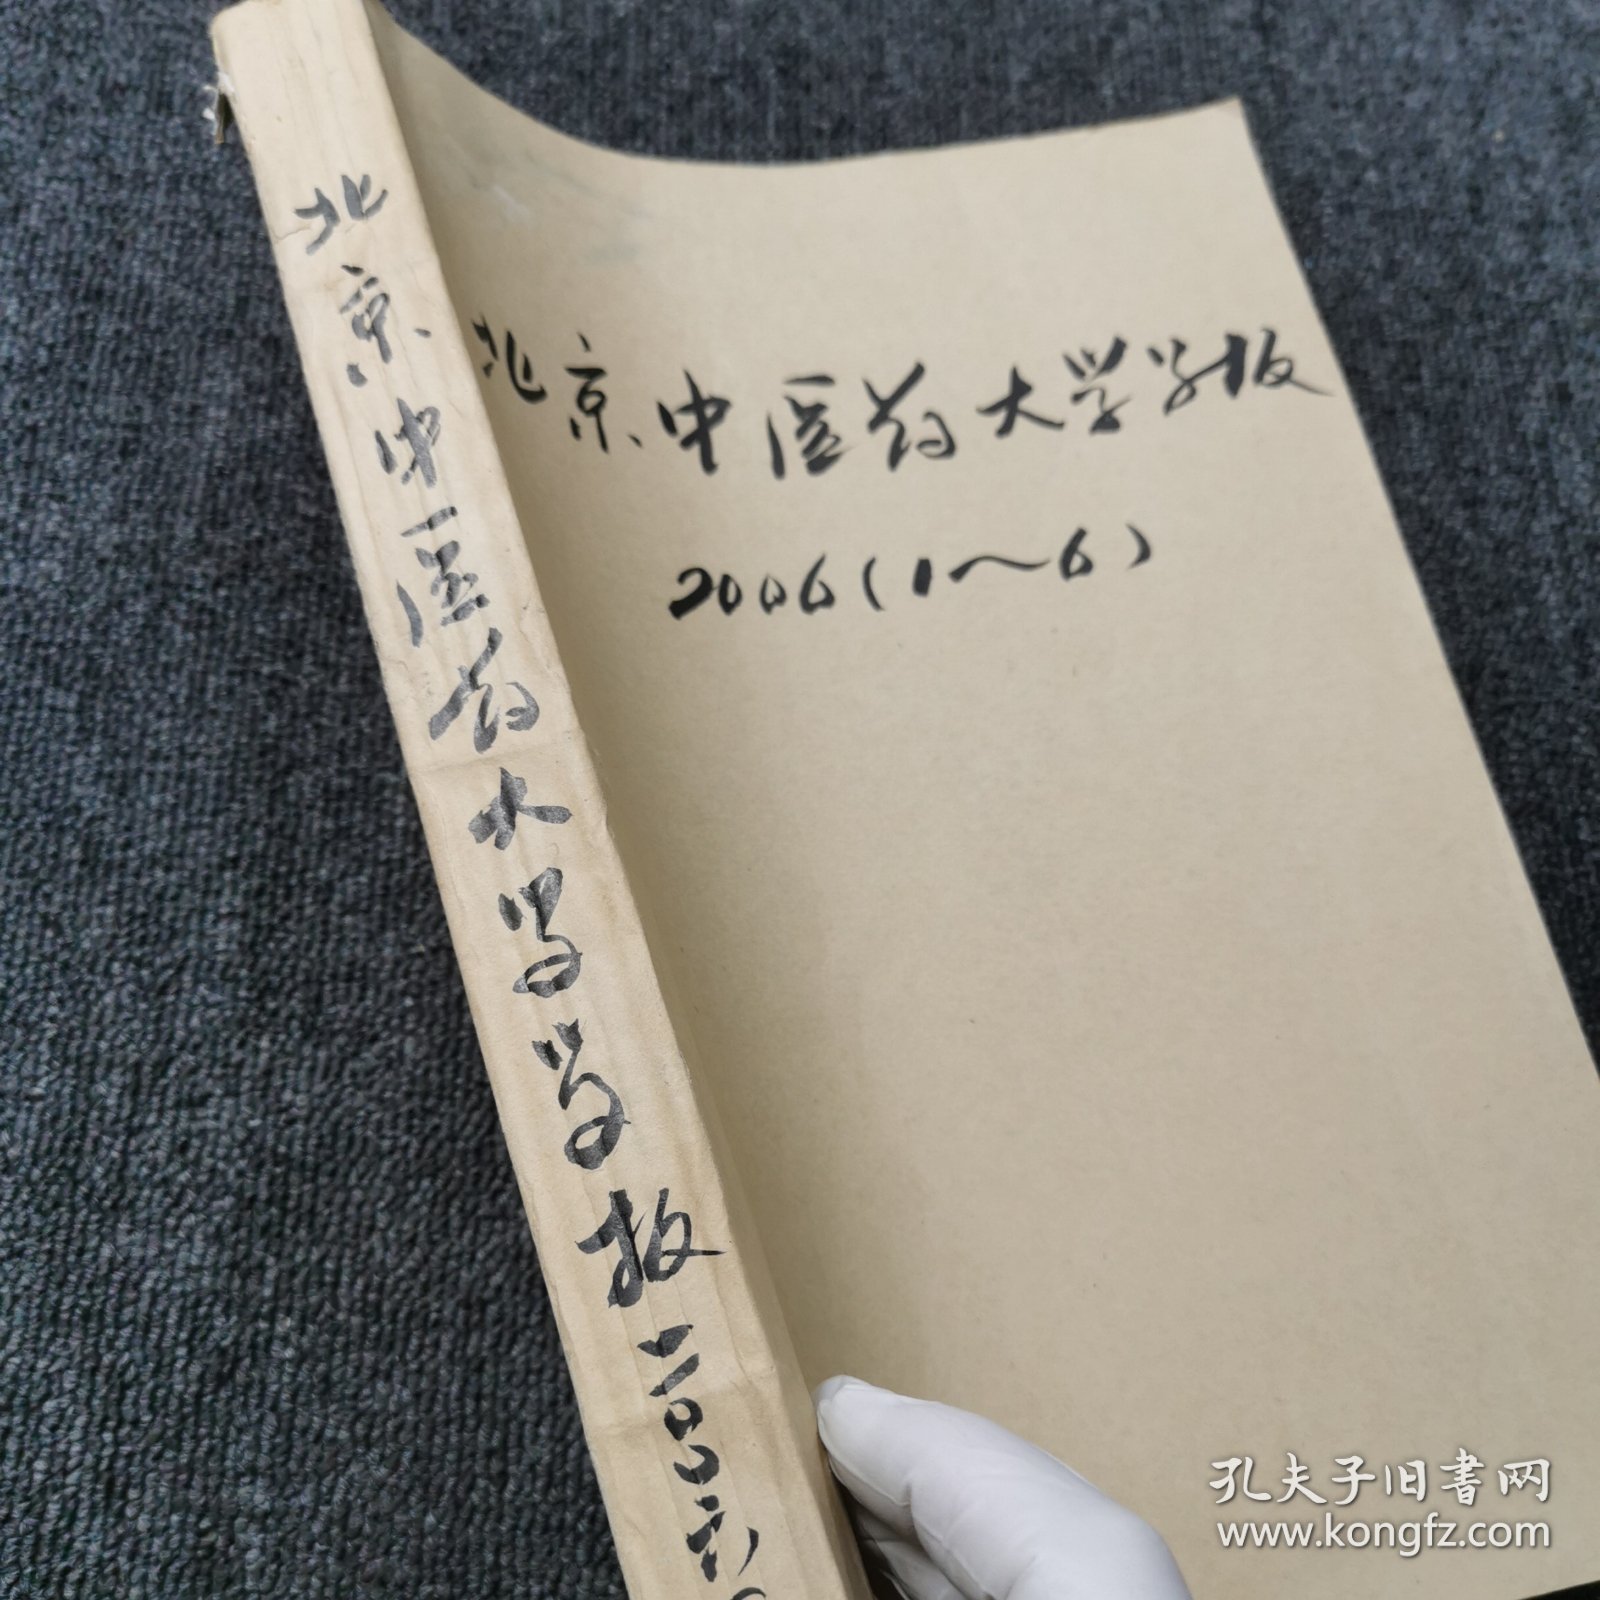 北京中医药大学学报二〇〇六
北京中医药大学学报
2006(1～6)
孔夫子旧书网
www.kongfz.com